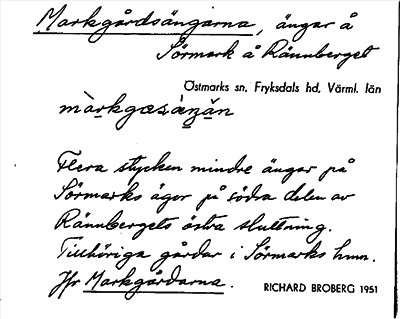 Markgårdsängarna, ängar å
Sörmark å Rännberget
Östmarks sn. Fryksdals hd. Värml. län
màrkgæsàŋăn
Flera stycken mindre ängar på
Sörmarks ägor på södra delen av
Rännbergets östra sluttning.
Tillhöriga gårdar i Sörmarks hmn.
Jfr Markgårdarna.
RICHARD BROBERG 1951